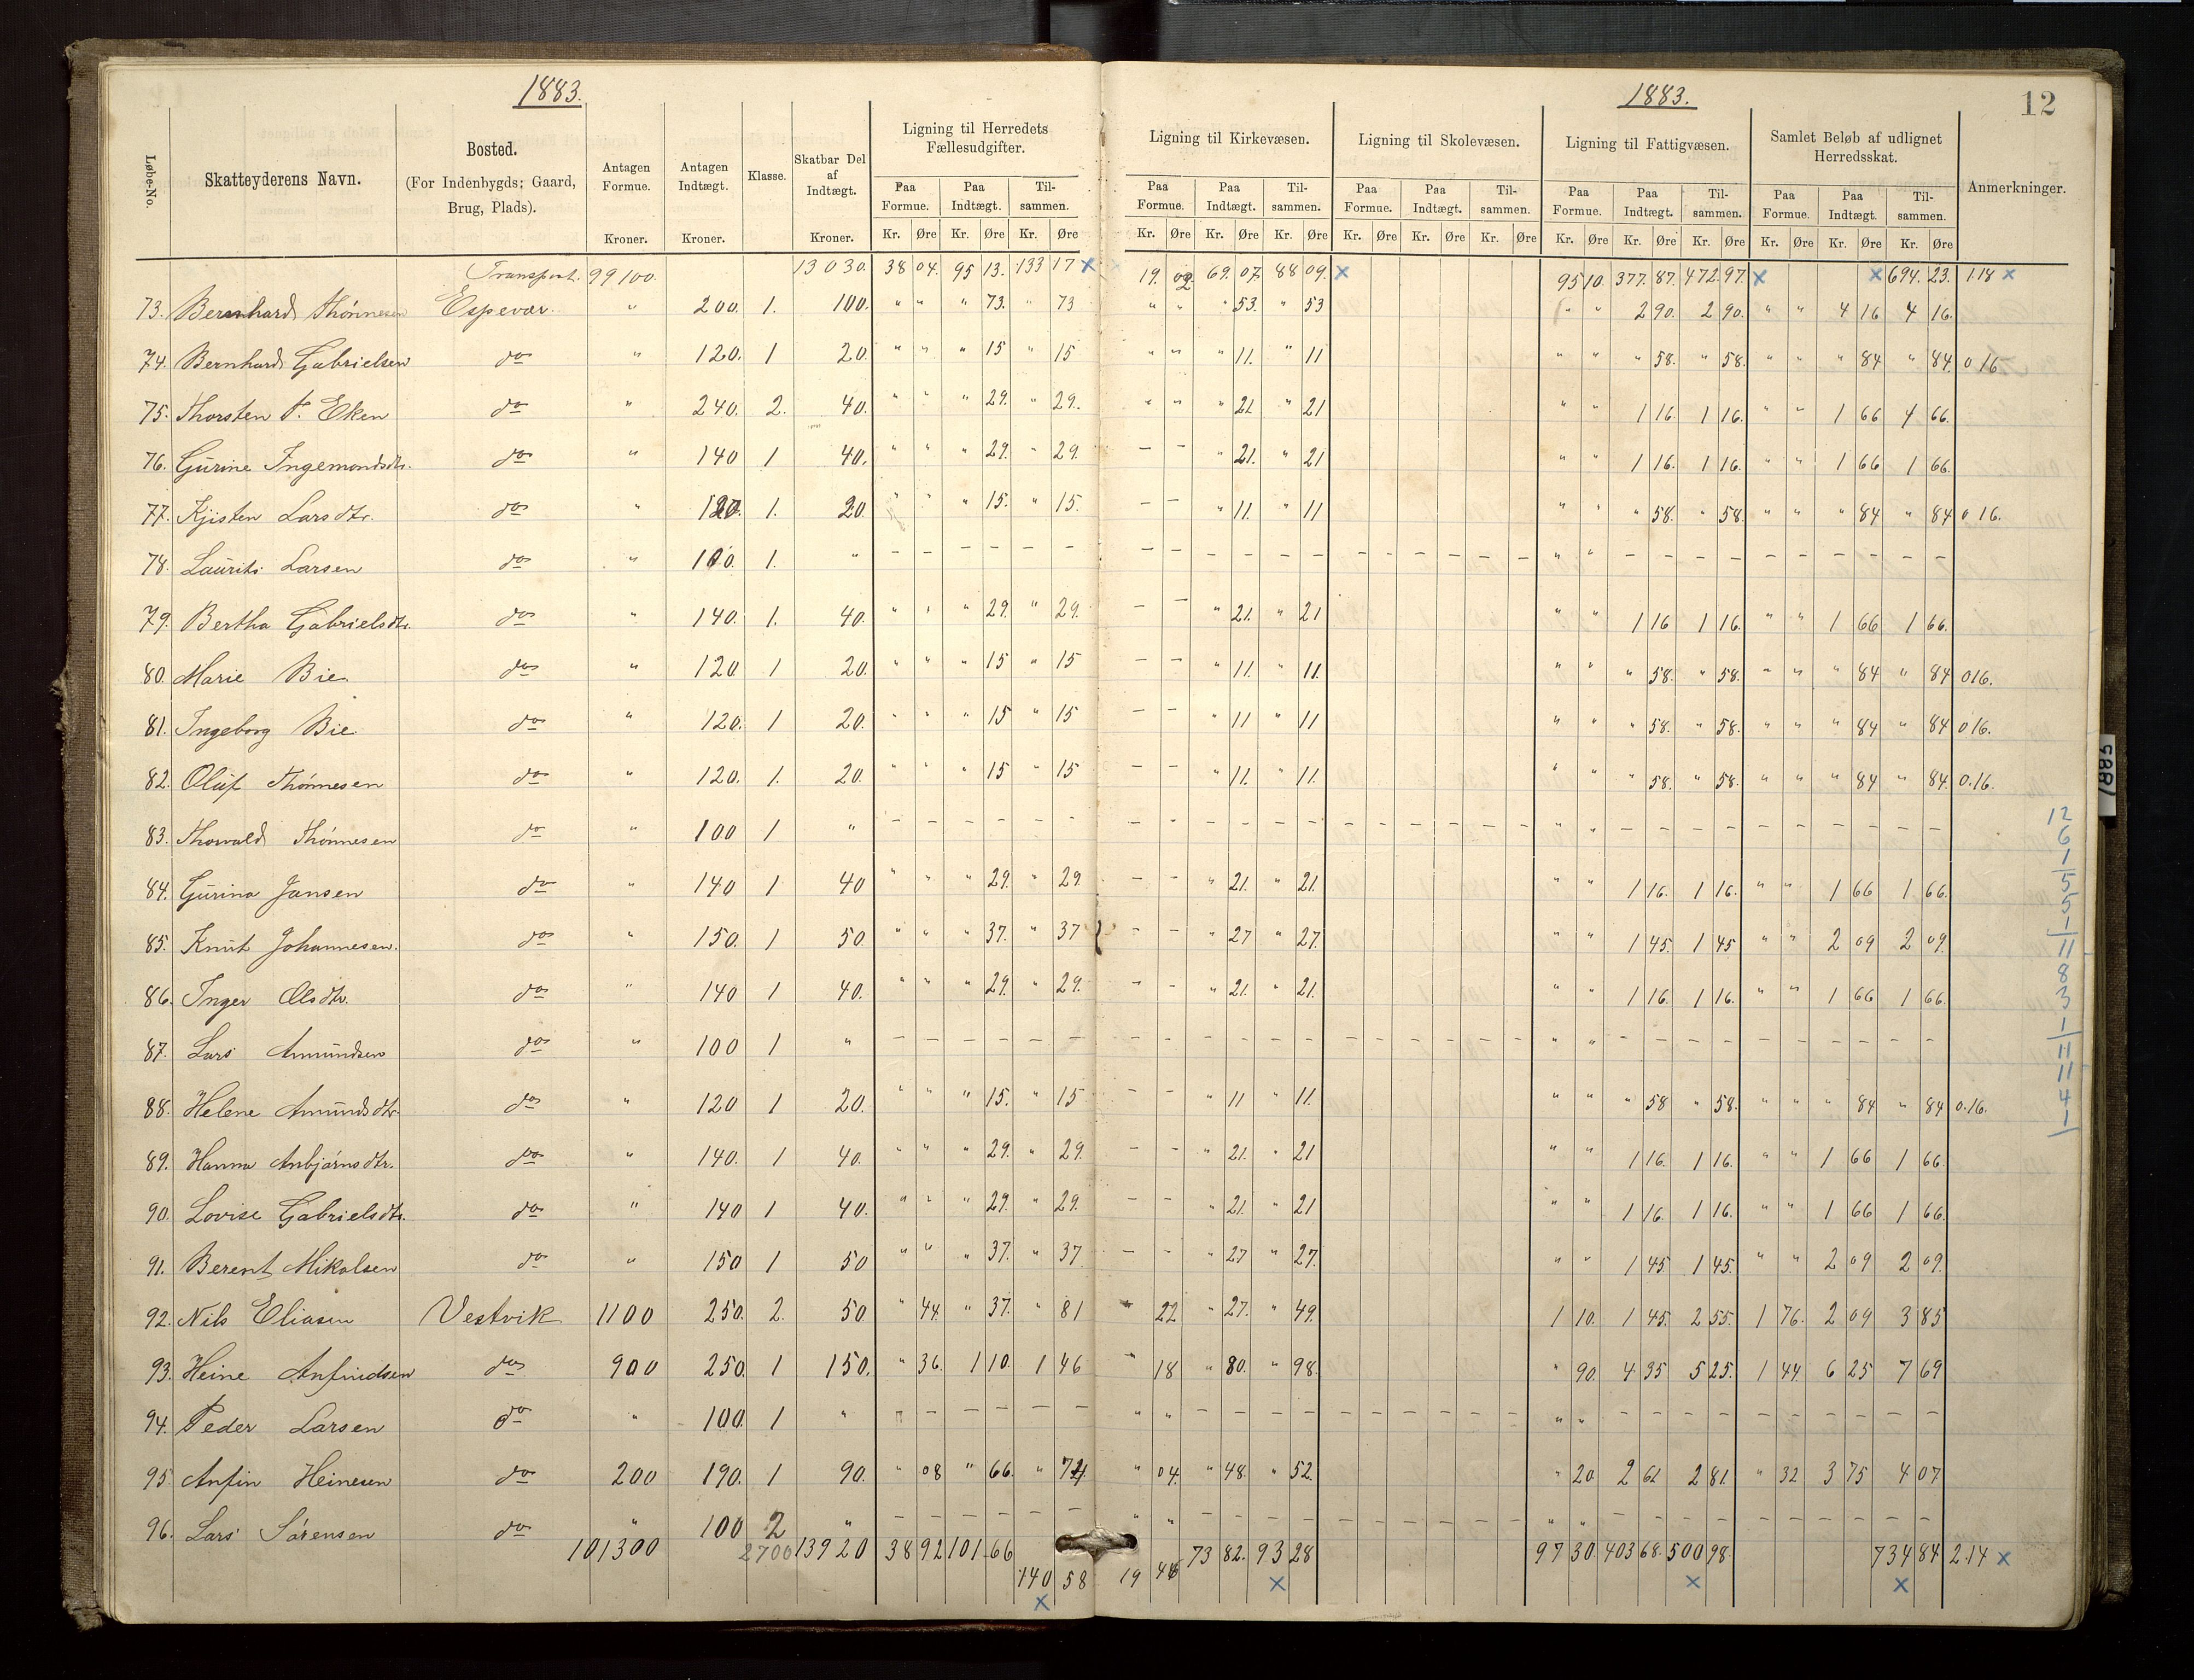 1883.
1883.
12
Løbe-No.
Skatteyderens Navn.
Bosted.
(For Indenbygds; Gaard,
Brug, Plads).
Antagen Formue.
Kroner.
Antagen Indtægt.
Kroner.
Klasse.
Skatbar Del af Indtægt.
Kroner.
Ligning til Herredets Fællesudgifter.
Paa Formue. Paa Indtægt. Til-sammen.
Kr. Øre Kr. Øre Kr. Øre
Ligning til Kirkevæsen.
Paa Formue. Paa Indtægt. Til-sammen.
Kr. Øre Kr. Øre Kr. Øre
Ligning til Skolevæsen.
Paa Formue. Paa Indtægt. Til-sammen.
Kr. Øre Kr. Øre Kr. Øre
Ligning til Fattigvæsen.
Paa Formue. Paa Indtægt. Til-sammen.
Kr. Øre Kr. Øre Kr. Øre
Samlet Beløb af udlignet Herredsskat.
Paa Formue. Paa Indtægt. Til-sammen.
Kr. Øre Kr. Øre Kr. Øre
Anmerkninger.
Transport. 99100. 13030. 38 04. 95 13. 133 17 x 19. 02. 69. 07. 88 09. x 95 10. 377. 87. 472. 97. x x 694. 23. 118 x
73. Bernhard Thönnesen Espevær. " 200. 1. 100. " " " 73. " 73 " " " 53. " 53 " " 2 90. 2 90. " " 4 16 4 16.
74. Bernhard Gabrielsen do " 120. 1 20. " " " 15 " 15 " " " 11. " 11 " " " 58. " 58. " " " 84 " 84. 0 16
75. Thorsten T. Eken do " 240. 2. 40. " " " 29. " 29. " " " 21 " 21 " " 1 16. 1 16. " " 1 66 4 66.
76. Gurine Ingemondsdtr. do " 140 1 40. " " " 29. " 29. – – " 21. " 21 " " 1 16. 1 16. " " 1 66 1 66.
77. Kjisten Larsdtr. do " 120. 1. 20. " " " 15. " 15. – – " 11. " 11 " " " 58. " 58. " " " 84 " 84 0 16.
78. Laurits Larsen do " 100. 1. " – – – – – – – – – – – – – – – – – – " " – – – – – – – – – –
79. Bertha Gabrielsdtr. do " 140. 1. 40. " " " 29. " 29. – – " 21. " 21 " " 1 16 1 16. " " 1 66 1 66.
80. Marie Bie do " 120 1 20. " " " 15 " 15 – – " 11. " 11. " " " 58. " 58. " " " 84 " 84 016.
81. Ingeborg Bie do " 120. 1 20. " " " 15 " 15 – – " 11 " 11 " " " 58. " 58. " " " 84 " 84 016.
82. Oluf Thönnesen do " 120. 1. 20. " " " 15 " 15 – – " 11. " 11. " " " 58. " 58. " " " 84 " 84. 0.16.
83. Thorvald Thönnesen do " 100 1 " – – – – – – – – – – – – – – – – – – " " – – – – – – – – – –
84. Gurina Jansen do " 140 1 40 " " " 29. " 29 – – " 21. " 21. " " 1 16. 1 16. " " 1 66 1 66.
85. Knut Johannesen. do " 150. 1 50 " " " 37. " 37 – – " 27 " 27. " " 1 45. 1 45 " " 2 09 2 09.
86. Inger Olsdtr. do " 140 1 40. " " " 29. " 29. – – " 21. " 21. " " 1 16. 1 16. " " 1 66 1 66.
87. Lars Amundsen do " 100 1 " – – – – – – – – – – – – – – – – – – " " – – – – – – – – – –
88. Helene Amundsdtr. do " 120 1 20. " " " 15. " 15 – – " 11 " 11. " " " 58 " 58. " " " 84 " 84 0.16.
89. Hanna Anbjörnsdtr. do " 140. 1 40. " " " 29. " 29. – – " 21. " 21 " " 1 16. 1 16. " " 1 66 1 66.
90. Lovise Gabrielsdtr. do " 140 1 40. " " " 29. " 29. – – " 21. " 21 " " 1 16. 1 16. " " 1 66 1 66.
91. Berent Mikalsen do " 150 1 50 " " " 37. " 37 – – " 27 " 27. " " 1 45. 1 45. " " 2 09 2 09.
92. Nils Eliasen Vestvik 1100 250. 2. 50 " 44. " 37. " 81 " 22 " 27. " 49. 1 10. 1 45. 2 55. 1 76. 2 09 3 85
93. Heine Anfindsen do 900 250. 1 150. " 36. 1 10. 1 46 " 18 " 80. " 98. " 90. 4 35 5 25. 1 44. 6 25 7 69
94. Peder Larsen do " 100. 1 " " – – – – – " " – – – – – – – – – – " " – – – – – – – – – –
95. Anfin Heinesen do 200 190. 1 90. " 08 " 66. " 74. " 04. " 48. " 52. " 20. 2 61 2 81. " 32 3 75 4 07
96. Lars Sörensen do " 100 2 " – – – – – – " " – – – – – – – – – – " " – – – – – – – – – –
101300 2700 13920 38 92 101 66 73 82. 93 28 97 30. 403 68. 500 98. 734 84 2.14 x
140 58 19 46 x x x
x
12
6
1
5
5
1
11
8
3
1
11
11
4
1
1883